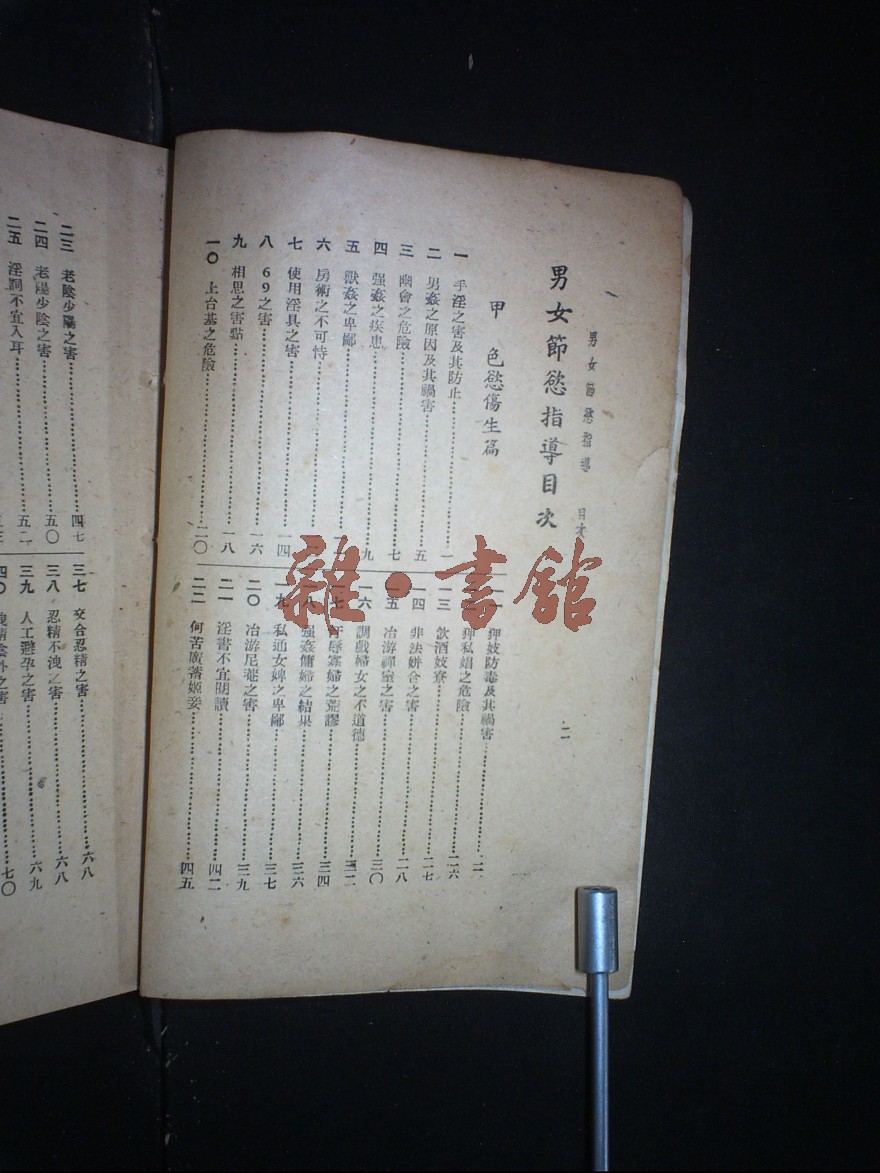 男女節慾指導 目次
二
男女節慾指導目次
甲 色慾傷生篇
一 手淫之害及其防止 一
二 男姦之原因及其禍害 五
三 幽會之危險 七
四 强姦之疾患 九
五 獸姦之卑鄙
六 房術之不可恃
七 使用淫具之害 一四
八 69之害 一六
九 相思之害點 一八
一〇 上台基之危險 二〇
狎妓防毒及其禍害
狎私娼之危險 二六
一三 飲酒妓寮 二七
一四 非法姘合之害 二八
一五 冶游禪室之害 三〇
一六 調戲婦女之不道德 三二
汚辱寡婦之荒謬 三四
强姦傭婦之結果 三六
一九 私通女婢之卑鄙 三七
二〇 冶游尼菴之害 三九
二一 淫書不宜閱讀 四二
二二 何苦廣蓄姬妾 四五
二三 老陰少陽之害 四七
二四 老陽少陰之害 五〇
二五 淫詞不宜入耳 五二
三七 交合忍精之害 六八
三八 忍精不洩之害 六八
三九 人工避孕之害 六九
四〇 洩精陰外之害 七〇
雜·書館